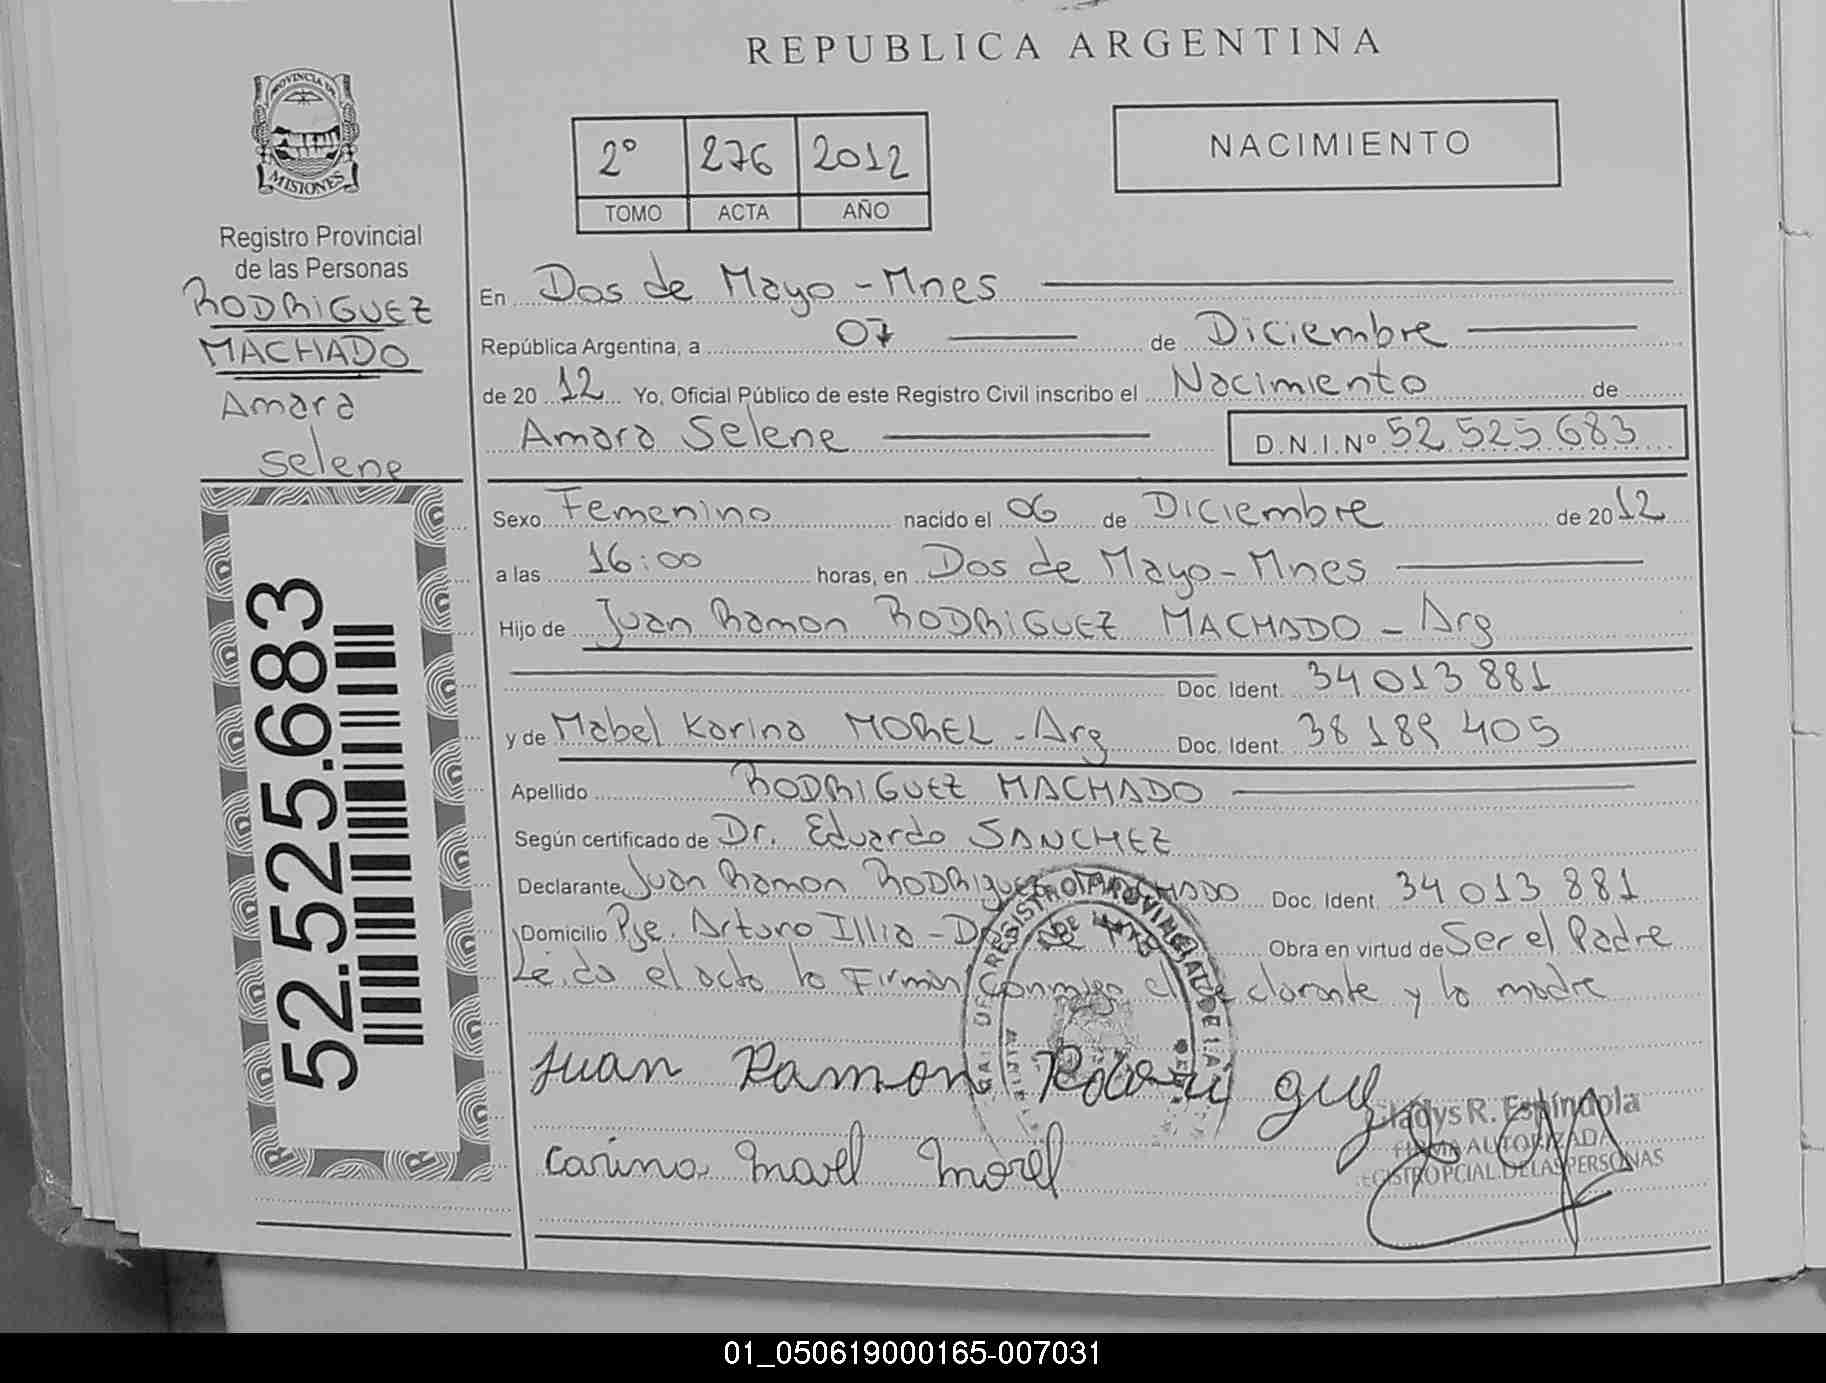 REPUBLICA ARGENTINA
PROVINCIA DE
MISIONES
Registro Provincial
de las Personas
RODRIGUEZ
MACHADO
Amara
Selene
52.525.683
2° 276 2012
TOMO ACTA AÑO
NACIMIENTO
En Dos de Mayo - Mnes
República Argentina, a 07 de Diciembre
de 20 12 Yo, Oficial Público de este Registro Civil inscribo el Nacimiento de
Amara Selene D.N.I.Nº 52 525 683
Sexo Femenino nacido el 06 de Diciembre de 20 12
a las 16:00 horas, en Dos de Mayo - Mnes
Hijo de Juan Ramon RODRIGUEZ MACHADO - Arg
Doc. Ident. 34 013 881
y de Mabel Karina MOREL - Arg Doc. Ident. 38 189 405
Apellido RODRIGUEZ MACHADO
Según certificado de Dr. Eduardo SANCHEZ
Declarante Juan Ramon RODRIguez MACHADO Doc. Ident. 34 013 881
Domicilio Pje. Arturo Illia - Obra en virtud de Ser el Padre
Leida el acta la Firman Conmigo el declarante y la madre
Juan Ramon Rodriguez
Gladys R. Espíndola
FIRMA AUTORIZADA
REGISTRO PCIAL. DE LAS PERSONAS
Carina Mavel Morel
01_050619000165-007031